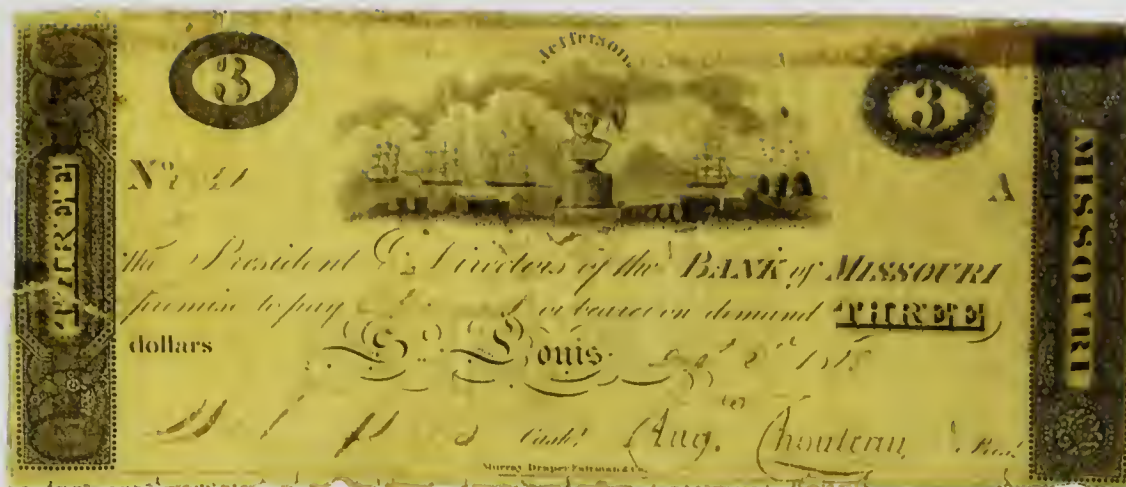 Jefferson.
3 3
THREE
MISSOURI
No A
The President & Directors of the BANK of MISSOURI
promise to pay or bearer on demand THREE
dollars St. Louis 1818
Cashr. Aug. Chouteau, Prest.
Murray Draper Fairman & Co.